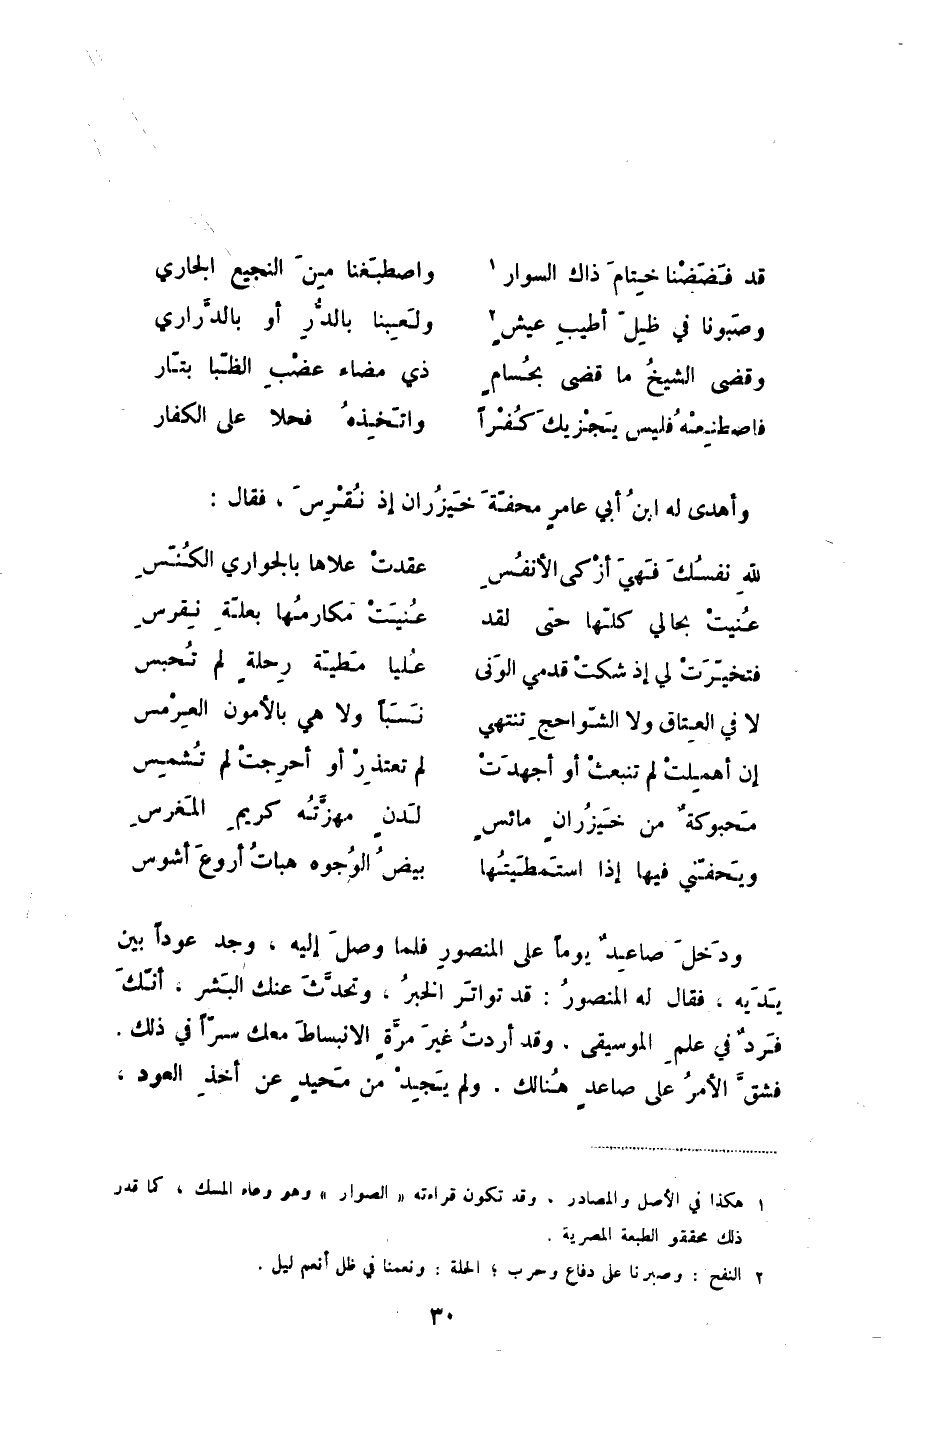 قد فَضَضْنا خِتامَ ذاك السوار ١ واصطبَغنا مِنَ النجيع الجاري
وصَبونا في ظِلِّ أطيبِ عيشٍ ٢ ولَعِبنا بالدُّرِ أو بالدَّراري
وقضى الشيخُ ما قضى بحُسامٍ ذي مضاء عضْبِ الظبّا بتّار
فاصطنِعْهُ فليس يَجْزيكَ كُفْراً واتّخِذهُ فحلا على الكفار
وأهدى له ابنُ أبي عامرٍ محفّةَ خَيزُران إذ نُقْرِسَ ، فقال :
للهِ نفسُكَ فَهيَ أزْكى الأنفُسِ عقدتْ علاها بالجواري الكُنّسِ
عُنيتْ بحالي كلّها حتى لقد عُنيَتْ مَكارمُها بعلّةِ نِقرسِ
فتخيّرَتْ لي إذ شكتْ قدمي الوَنى عُليا مَطيّة رِحلةٍ لم تُحبس
لا في العِتاق ولا الشّواحجِ تنتهي نَسَباً ولا هي بالأمون العِرْمس
إن أهمِلتْ لم تنبعثْ أو أجهدَتْ لم تعتذِرْ أو أحرِجتْ لم تُشمِس
مَحبوكةٌ من خَيزُرانٍ مائسٍ لَدنٍ مهزَّتُه كريمِ المَغرسِ
ويَحفّني فيها إذا استَمطَيتُها بيضُ الوُجوه هباتُ أروعَ أشوس
ودَخلَ صاعِدٌ يوماً على المنصورِ فلما وصلَ إليه ، وجد عوداً بين
يَدَيه ، فقال له المنصورُ : قد تواتَر الخبرُ ، وتحدَّثَ عنك البَشر ، أنّكَ
فَردٌ في علمِ الموسيقى . وقد أردتُ غيرَ مرَّةٍ الانبساطَ معك سرّاً في ذلك .
فشقَّ الأمرُ على صاعدٍ هُنالك . ولم يَجِدْ من مَحيدٍ عن أخذِ العود ،
١ هكذا في الأصل والمصادر . وقد تكون قراءته « الصوار » وهو وعاء المسك ، كما قدر
ذلك محققو الطبعة المصرية .
٢ النفح : وصبرنا على دفاع وحرب ؛ الحلة : ونعمنا في ظل أنعم ليل .
٣٠